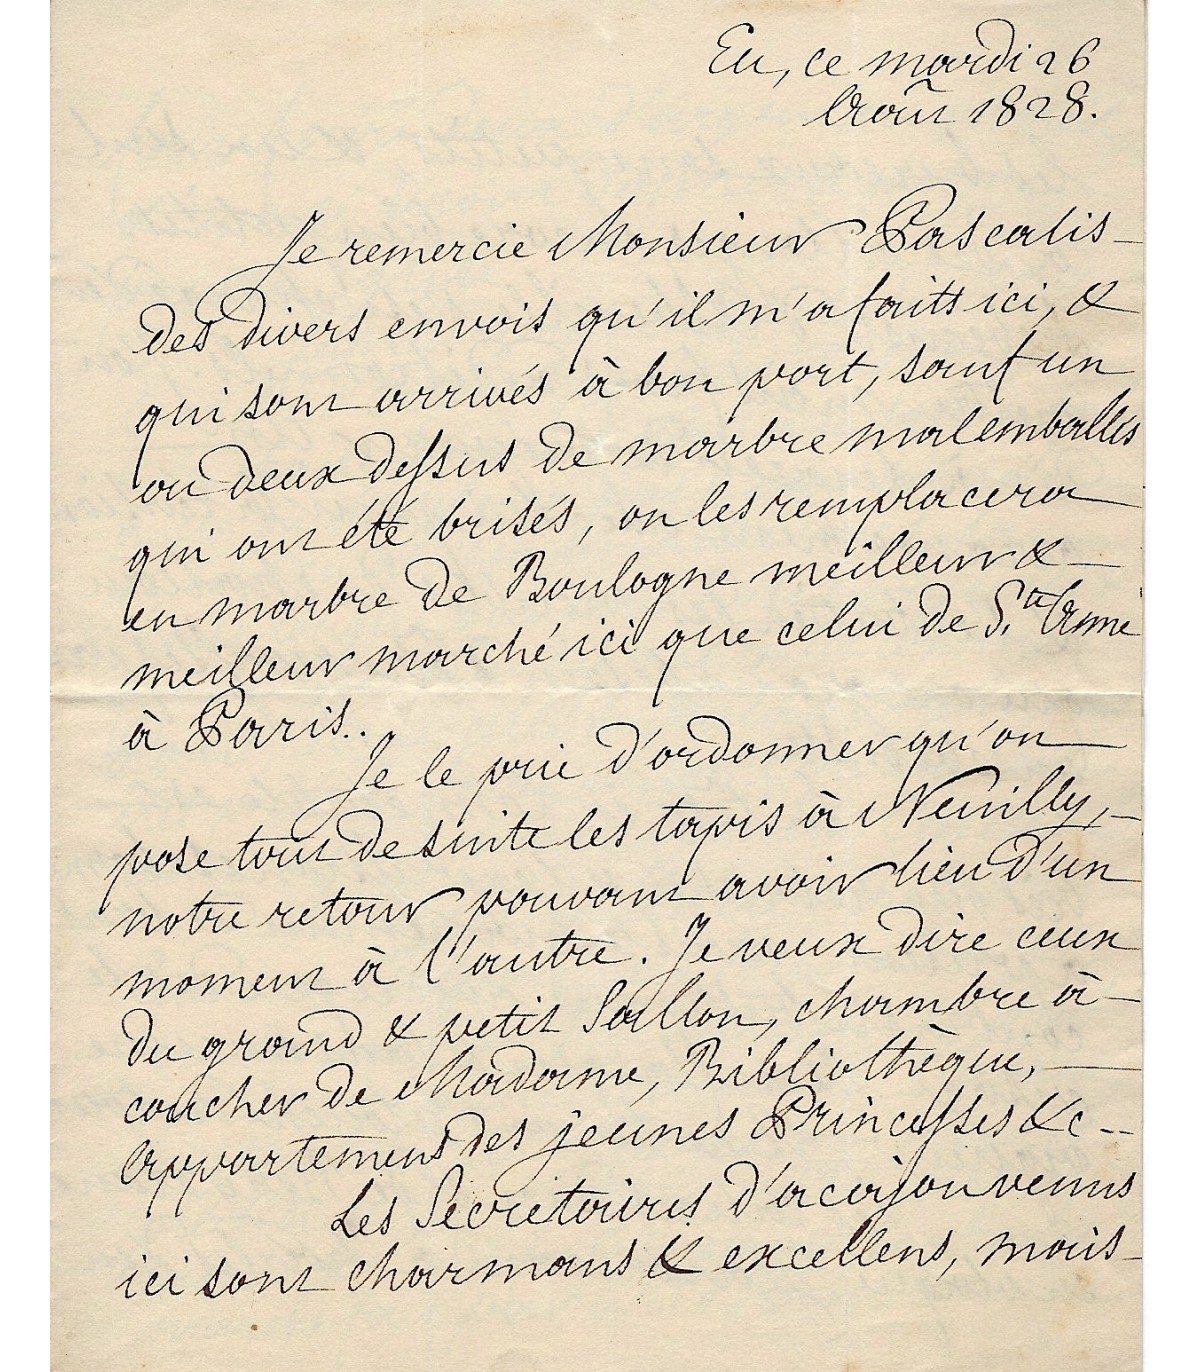 Eu, ce mardi 26
Août 1828.
Je remercie Monsieur Pascalis
des divers envois qu'il m'a faits ici, &
qui sont arrivés à bon port, sauf un
ou deux dessus de marbre mal emballés
qui ont été brisés, on les remplacera
en marbre de Boulogne meilleur &
meilleur marché ici que celui de Ste Anne
à Paris..
Je le prie d'ordonner qu'on
pose tout de suite les tapis à Neuilly,
notre retour pouvant avoir lieu d'un
moment à l'autre. Je veux dire ceux
du grand & petit Sallon, chambre à
coucher de Madame, Bibliothèque,
appartement des jeunes Princesses &c --
Les Secretaires d'acajou venus
ici sont charmans & excellens, mais